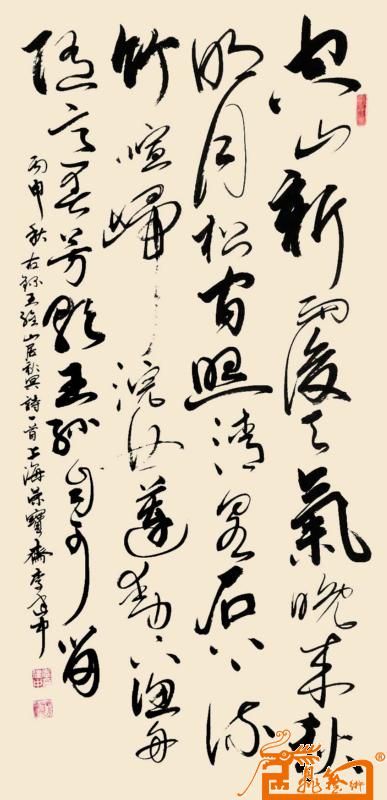 空山新雨後天氣晚來秋
明月松間照清泉石上流
竹喧歸浣女蓮動下漁舟
隨意春芳歇王孫自可留
丙申秋右錄王維山居秋興詩一首上海榮寶齋李